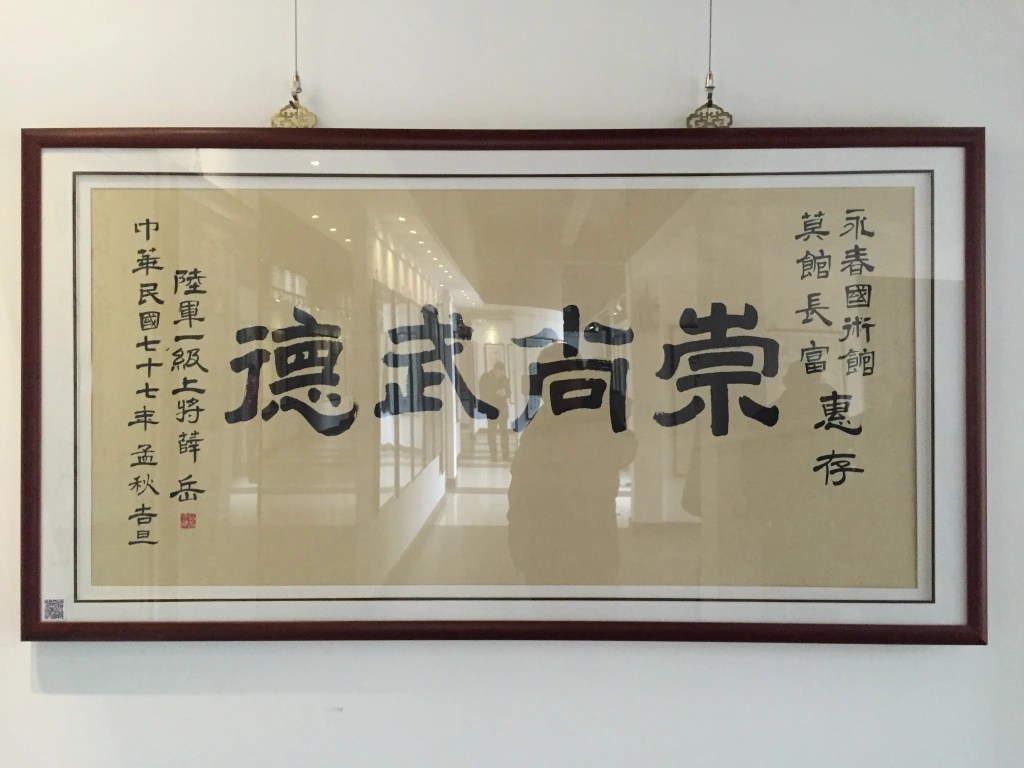 永春國術館
莫館長富惠存
崇尚武德
陸軍一級上将薛岳
中華民國七十七年孟秋吉旦